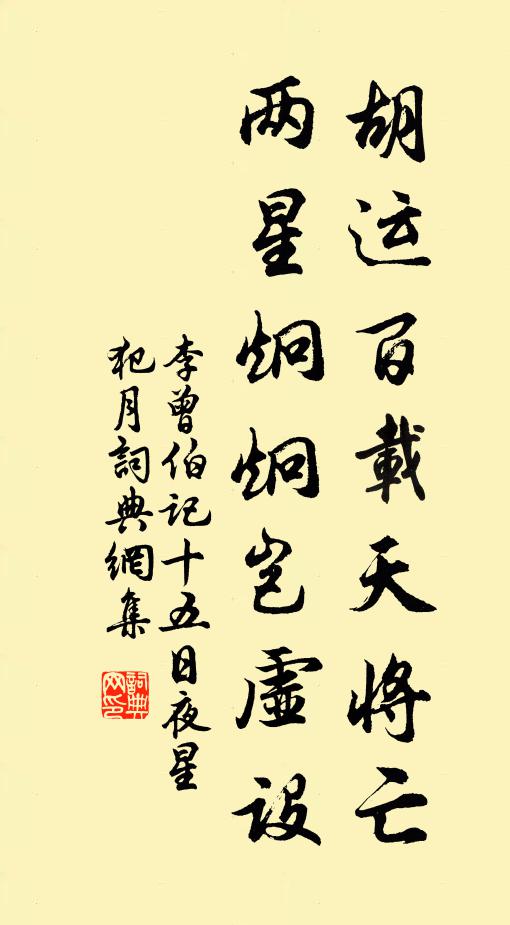 胡运百載天将亡
两星炯炯岂虛設
李曾伯记十五日夜星
犯月詞典網集
詞典網印